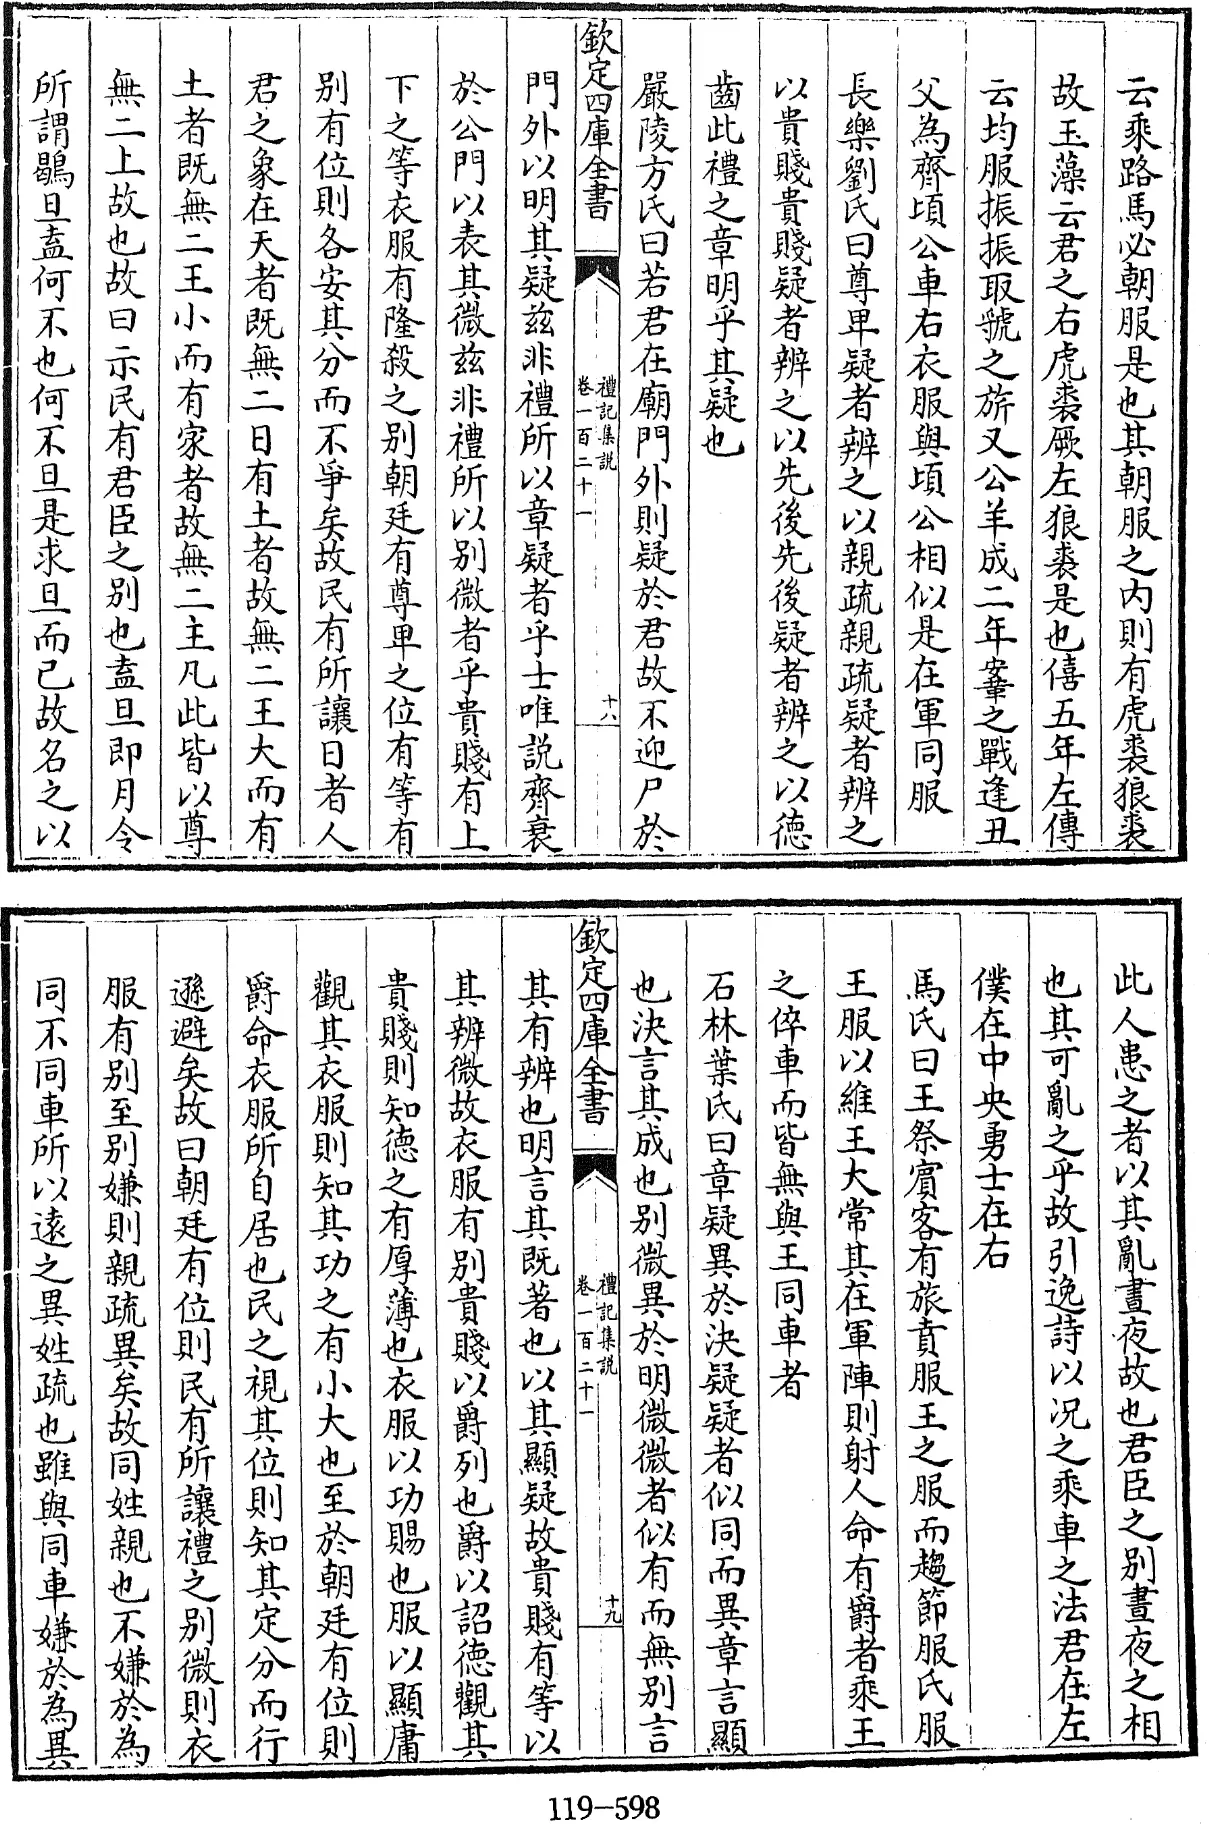 云乘路馬必朝服是也其朝服之內則有虎裘狼裘
故玉藻云君之右虎裘厥左狼裘是也僖五年左傳
云均服振振取虢之旂又公羊成二年鞌之戰逢丑
父為齊頃公車右衣服與頃公相似是在軍同服
長樂劉氏曰尊卑疑者辨之以親疏親疏疑者辨之
以貴賤貴賤疑者辨之以先後先後疑者辨之以德
齒此禮之章明乎其疑也
嚴陵方氏曰若君在廟門外則疑於君故不迎尸於
欽定四庫全書
禮記集說
卷一百二十一
十八
門外以明其疑兹非禮所以章疑者乎士唯説齊衰
於公門以表其微兹非禮所以别微者乎貴賤有上
下之等衣服有隆殺之别朝廷有尊卑之位有等有
别有位則各安其分而不爭矣故民有所讓日者人
君之象在天者既無二日有土者故無二王大而有
土者既無二王小而有家者故無二主凡此皆以尊
無二上故也故曰示民有君臣之别也盍旦即月令
所謂鶡旦盍何不也何不旦是求旦而已故名之以
此人患之者以其亂晝夜故也君臣之别晝夜之相
也其可亂之乎故引逸詩以况之乘車之法君在左
僕在中央勇士在右
馬氏曰王祭賓客有旅賁服王之服而趨節服氏服
王服以維王大常其在軍陣則射人命有爵者乘王
之倅車而皆無與王同車者
石林葉氏曰章疑異於決疑疑者似同而異章言顯
也決言其成也别微異於明微微者似有而無别言
欽定四庫全書
禮記集說
卷一百二十一
十九
其有辨也明言其既著也以其顯疑故貴賤有等以
其辨微故衣服有别貴賤以爵列也爵以詔德觀其
貴賤則知德之有厚薄也衣服以功賜也服以顯庸
觀其衣服則知其功之有小大也至於朝廷有位則
爵命衣服所自居也民之視其位則知其定分而行
遜避矣故曰朝廷有位則民有所讓禮之别微則衣
服有别至别嫌則親疏異矣故同姓親也不嫌於為
同不同車所以遠之異姓疏也雖與同車嫌於為異
119-598